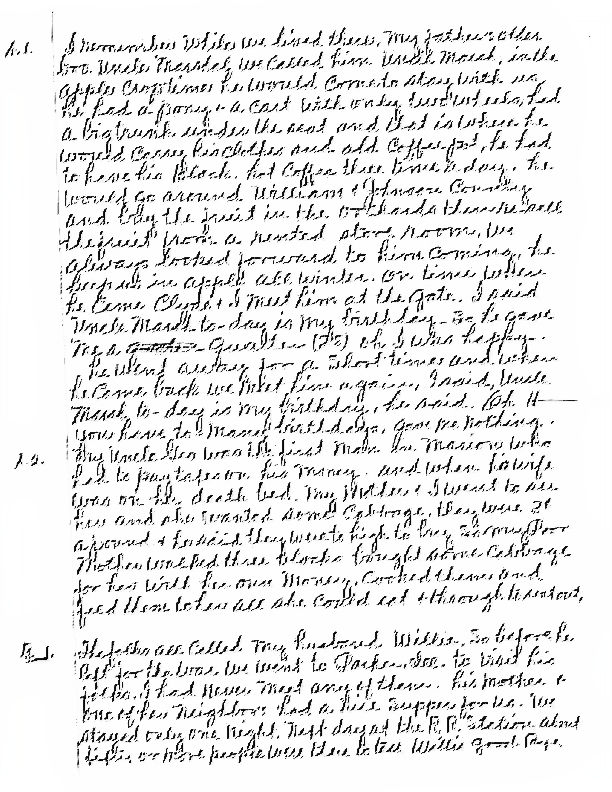 I remember while we lived there, my father's older
bro. Uncle Marshal, we called him Uncle Marsh, in the
apple crop times he would come to stay with us,
he had a pony & a cart with only two wheels, had
a big trunk under the seat and that is where he
would carry his clothes and old coffee pot, he had
to have his black hot coffee three times a day. he
would go around William & Johnson County
and buy the fruit in the orchards then he sell
the fruit from a rented store room, we
always looked forward to him coming, he
keep us in apples all winter. one time when
he came Clyde & I meet him at the gate. I said
Uncle Marsh to-day is my birthday. So he gave
me a Quarter oh I was happy.
he went away for a short time and when
he came back we meet him again, I said, Uncle
Marsh, to-day is my birthday, he said. Oh H—
you have to many birthdays, gave me nothing.
A.2. My Uncle was the first man in Marion who
had to pay taxes on his money. and when his wife
was on the death bed. My Mother & I went to see
her and she wanted some cabbage, they were
a pound & he said they were to high to buy, so my poor
Mother walked three blocks bought some cabbage
for her with her own money, cooked them and
feed them to her all she could eat &
The folks all called my husband Willie. So before he
left for the war, we went to Parker, to visit his
folks, I had never meet any of them. his mother &
one of her neighbors had a nice supper for us. We
stayed only one night. Next day at the R.R. Station about
fifty or more people were there to tell Willie good bye.